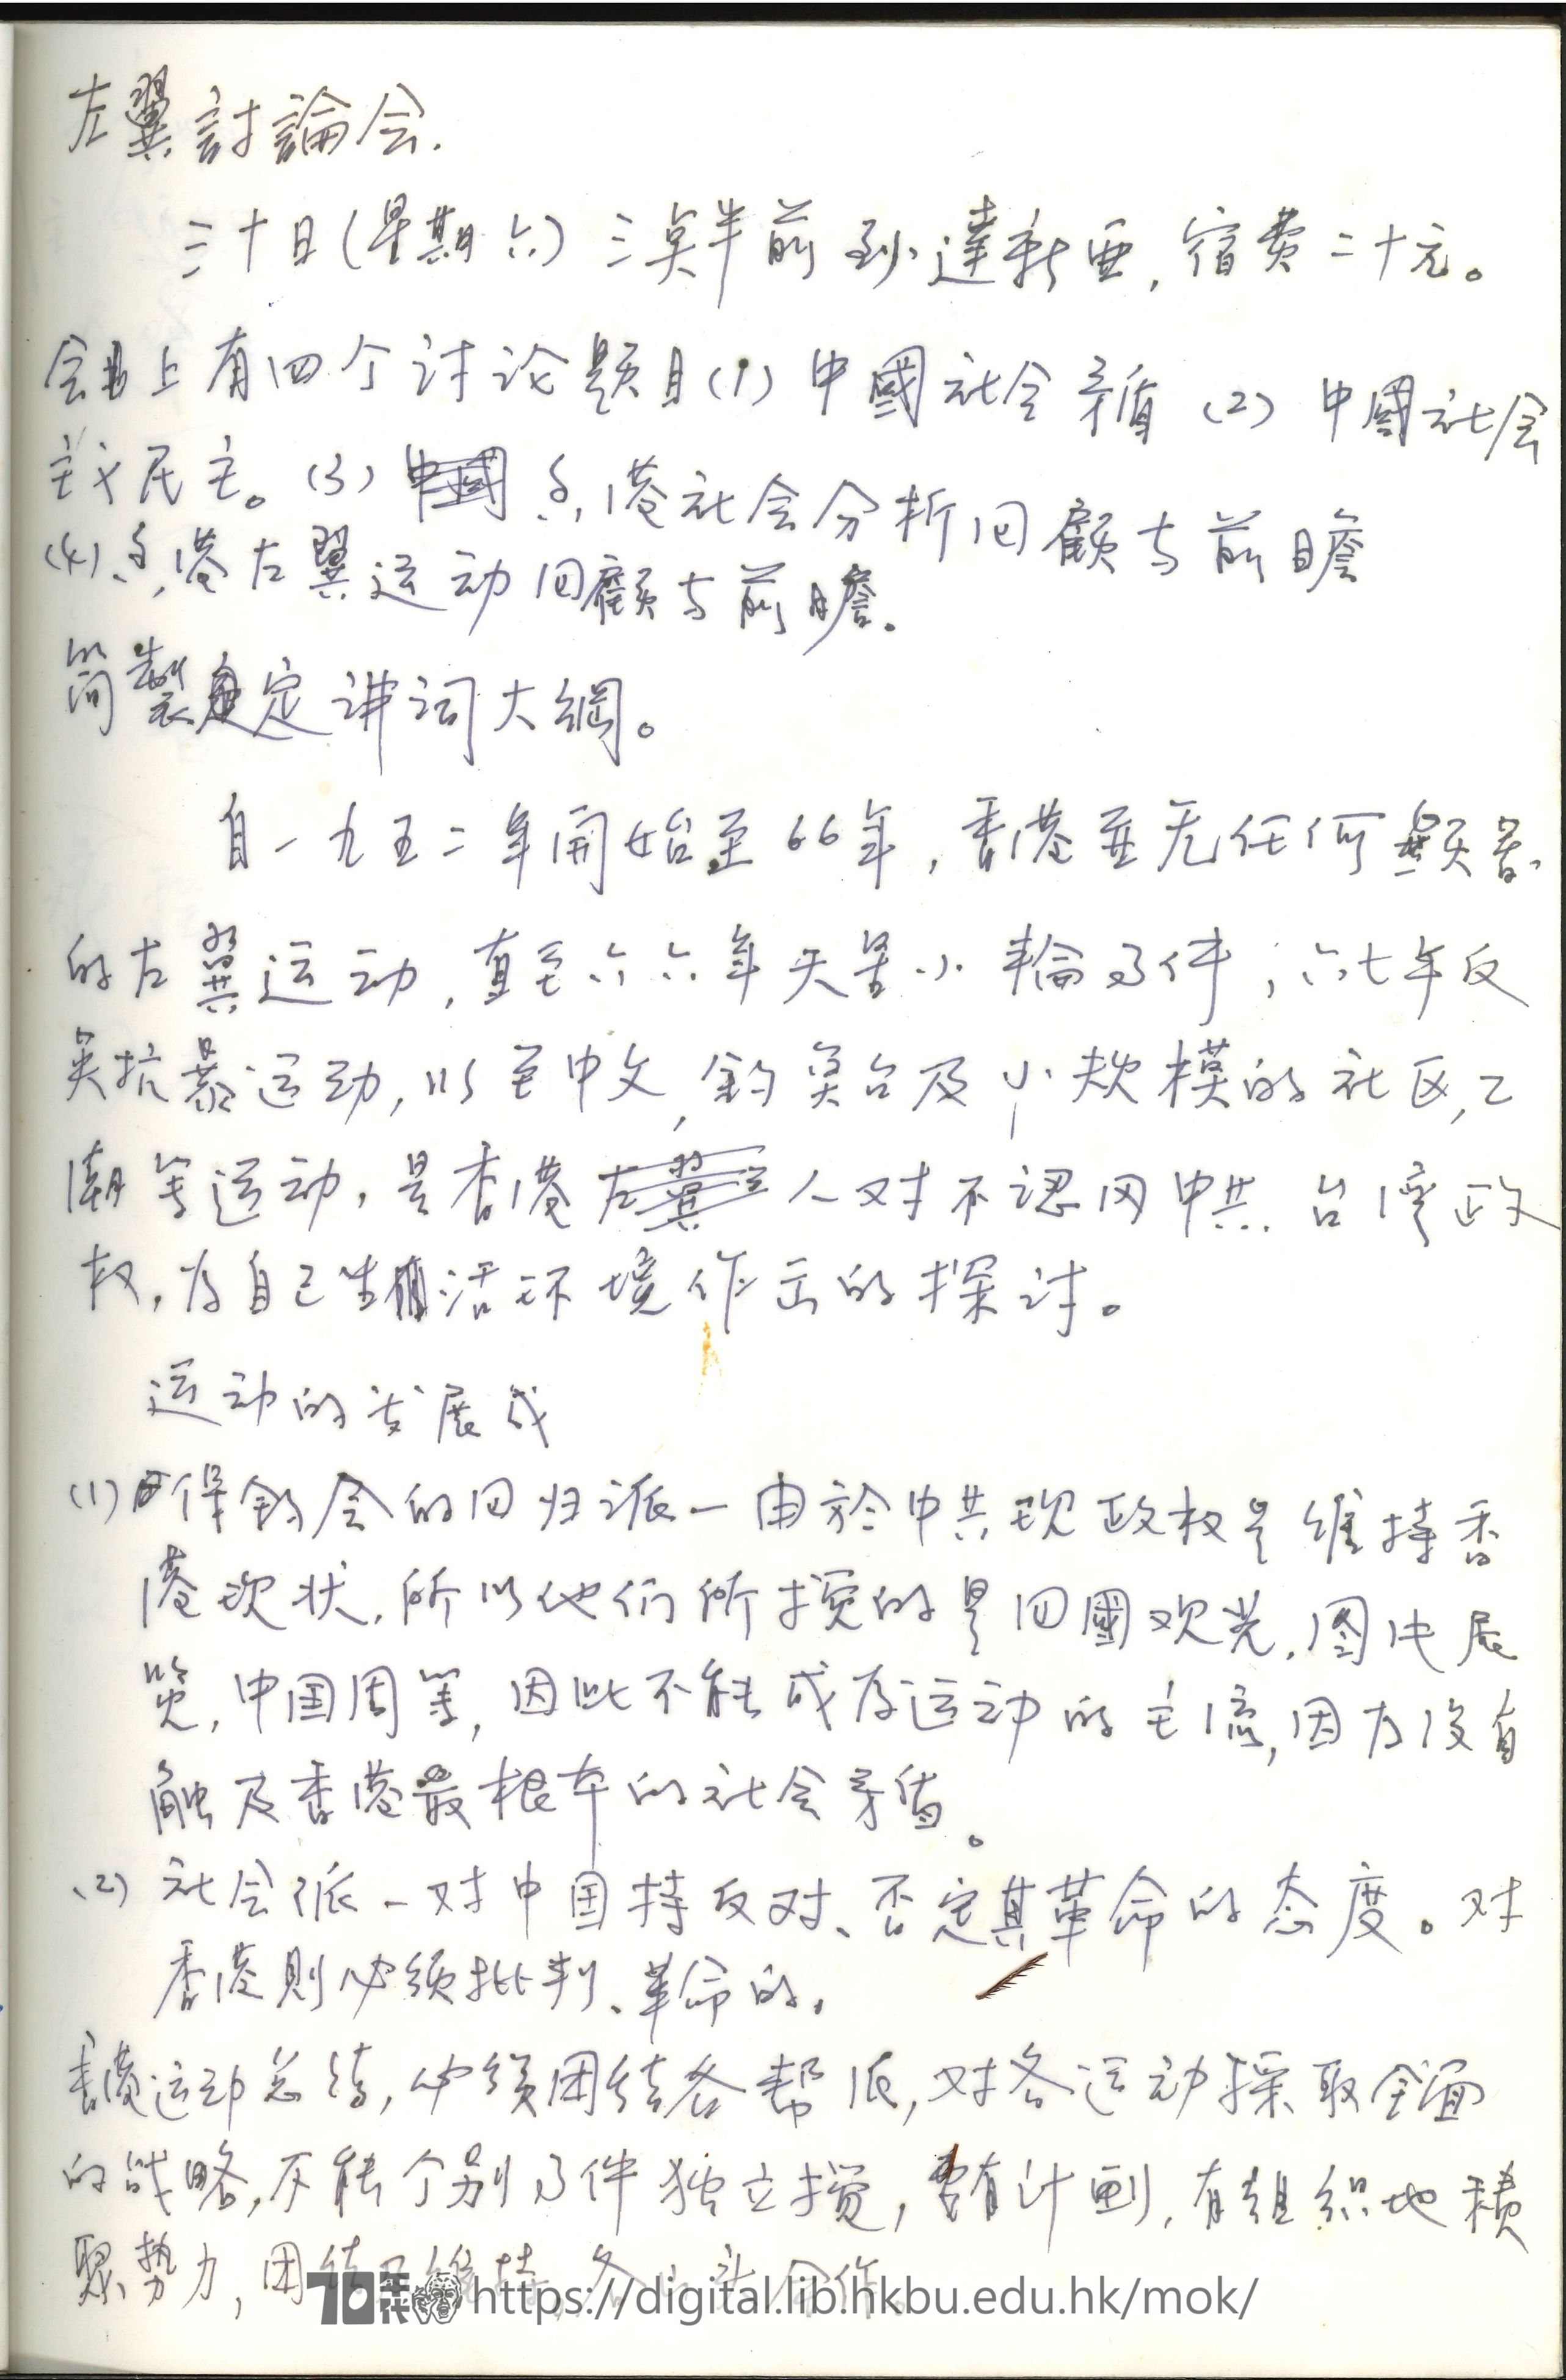 左翼討論会.
三十日(星期六)三点半前到達新亜,宿費二十元。
会上有四个讨论题目(1)中國社会矛盾(2)中國社会
主义民主。(3)香港社会分析回顧与前瞻
(4)香港左翼运动回顧与前瞻。
简製定讲词大綱。
自一九五二年開始至66年,香港並无任何顕著
的左翼运动,直至六六年天星小輪事件,六七年反
英抗暴运动,以至中文,釣魚台及小规模的社区,工
潮等运动,是香港人对不認同中共.台湾政
权,为自己生活环境作出的探讨。
运动的发展成
(1)保釣会的回归派—由於中共现政权是維持香
港现状,所以他们所搅的是回國观光,图片展
览,中国周等,因此不能成为运动的主流,因为没有
触及香港最根本的社会矛盾。
(2)社会派—对中国持反对、否定其革命的态度。对
香港則必须批判、革命的,
香港运动总结,必须团结各帮派,对各运动採取全面
的战略,不能个别事件独立搅,要有计劃,有组织地積
聚势力,团结及維持各山头合作。
70年代 https://digital.lib.hkbu.edu.hk/mok/